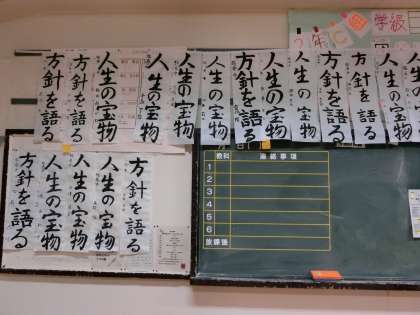 学級
2年C
方針を語る
方針を語る
人生の宝物
人生の宝物
人生の宝物
人生の宝物
方針を語る
人生の宝物
人生の宝物
方針を語る
方針を語る
人生の宝物
人生の宝物
方針を語る
人生の宝物
人生の宝物
人生の宝物
方針を語る
教科 連絡事項
1
2
3
4
5
6
放課後